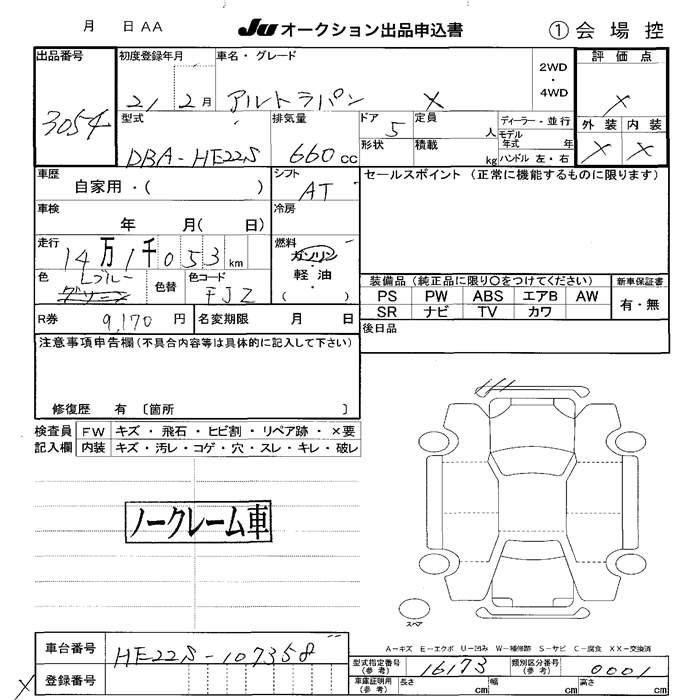 月 日 AA JU オークション出品申込書 ① 会場控
出品番号 初度登録年月 車名・グレード 2WD・4WD 評価点
3054 21 2月 アルトラパン X X
型式 排気量 ドア 定員 ディーラー・並行 外装 内装
DBA-HE22S 660cc 5 人 モデル年式 年 X X
形状 積載 kg ハンドル 左・右
車歴 シフト セールスポイント (正常に機能するものに限ります)
自家用・( ) AT
車検 冷房
年 月( 日)
走行 燃料
14万1千053km ガソリン
軽油
( )
色 色替 色コード 装備品(純正品に限り○をつけてください) 新車保証書
Lブルー FJZ PS PW ABS エアB AW 有・無
グリーン SR ナビ TV カワ
R券 9,170円 名変期限 月 日 後日品
注意事項申告欄(不具合内容等は具体的に記入して下さい)
修復歴 有〔箇所 〕
検査員 FW キズ・飛石・ヒビ割・リペア跡・×要
記入欄 内装 キズ・汚レ・コゲ・穴・スレ・キレ・破レ
ノークレーム車
スペア
A-キズ E-エクボ U-凹み W-補修跡 S-サビ C-腐食 XX-交換済
車台番号 HE22S-107358 型式指定番号(参考) 16173 類別区分番号(参考) 0001
X 登録番号 車庫証明用(参考) 長さ cm 幅 cm 高さ cm